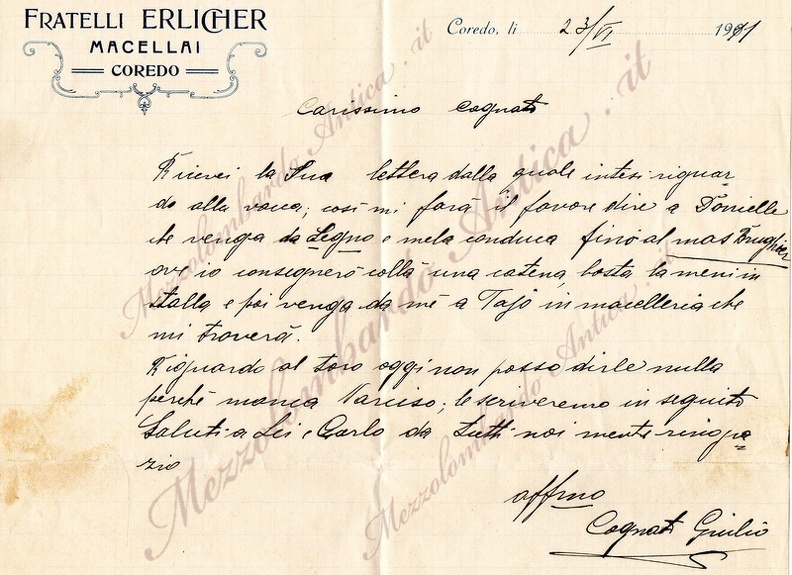 FRATELLI ERLICHER
MACELLAI
COREDO
Coredo, li 23/VI 1911
Carissimo Cognato
Ricevei la Sua lettera dalla quale intesi riguar-
do alla vacca; così mi farà il favore dire a
che venga da Segno e mela conduca fino al mas Brughier
ove io consegnerò collà una catena basta la meni in
stalla e poi venga da mé a Tajo in macelleria che
mi troverà.
Riguardo al toro oggi non posso dirle nulla
perché manca Narciso; le scriveremo in seguito
Saluti a Lei e Carlo da tutti noi mentre ringra-
zio
affmo
Cognato Giulio
Mezzolombardo Antica.it
Mezzolombardo Antica.it
Mezzolombardo Antica.it